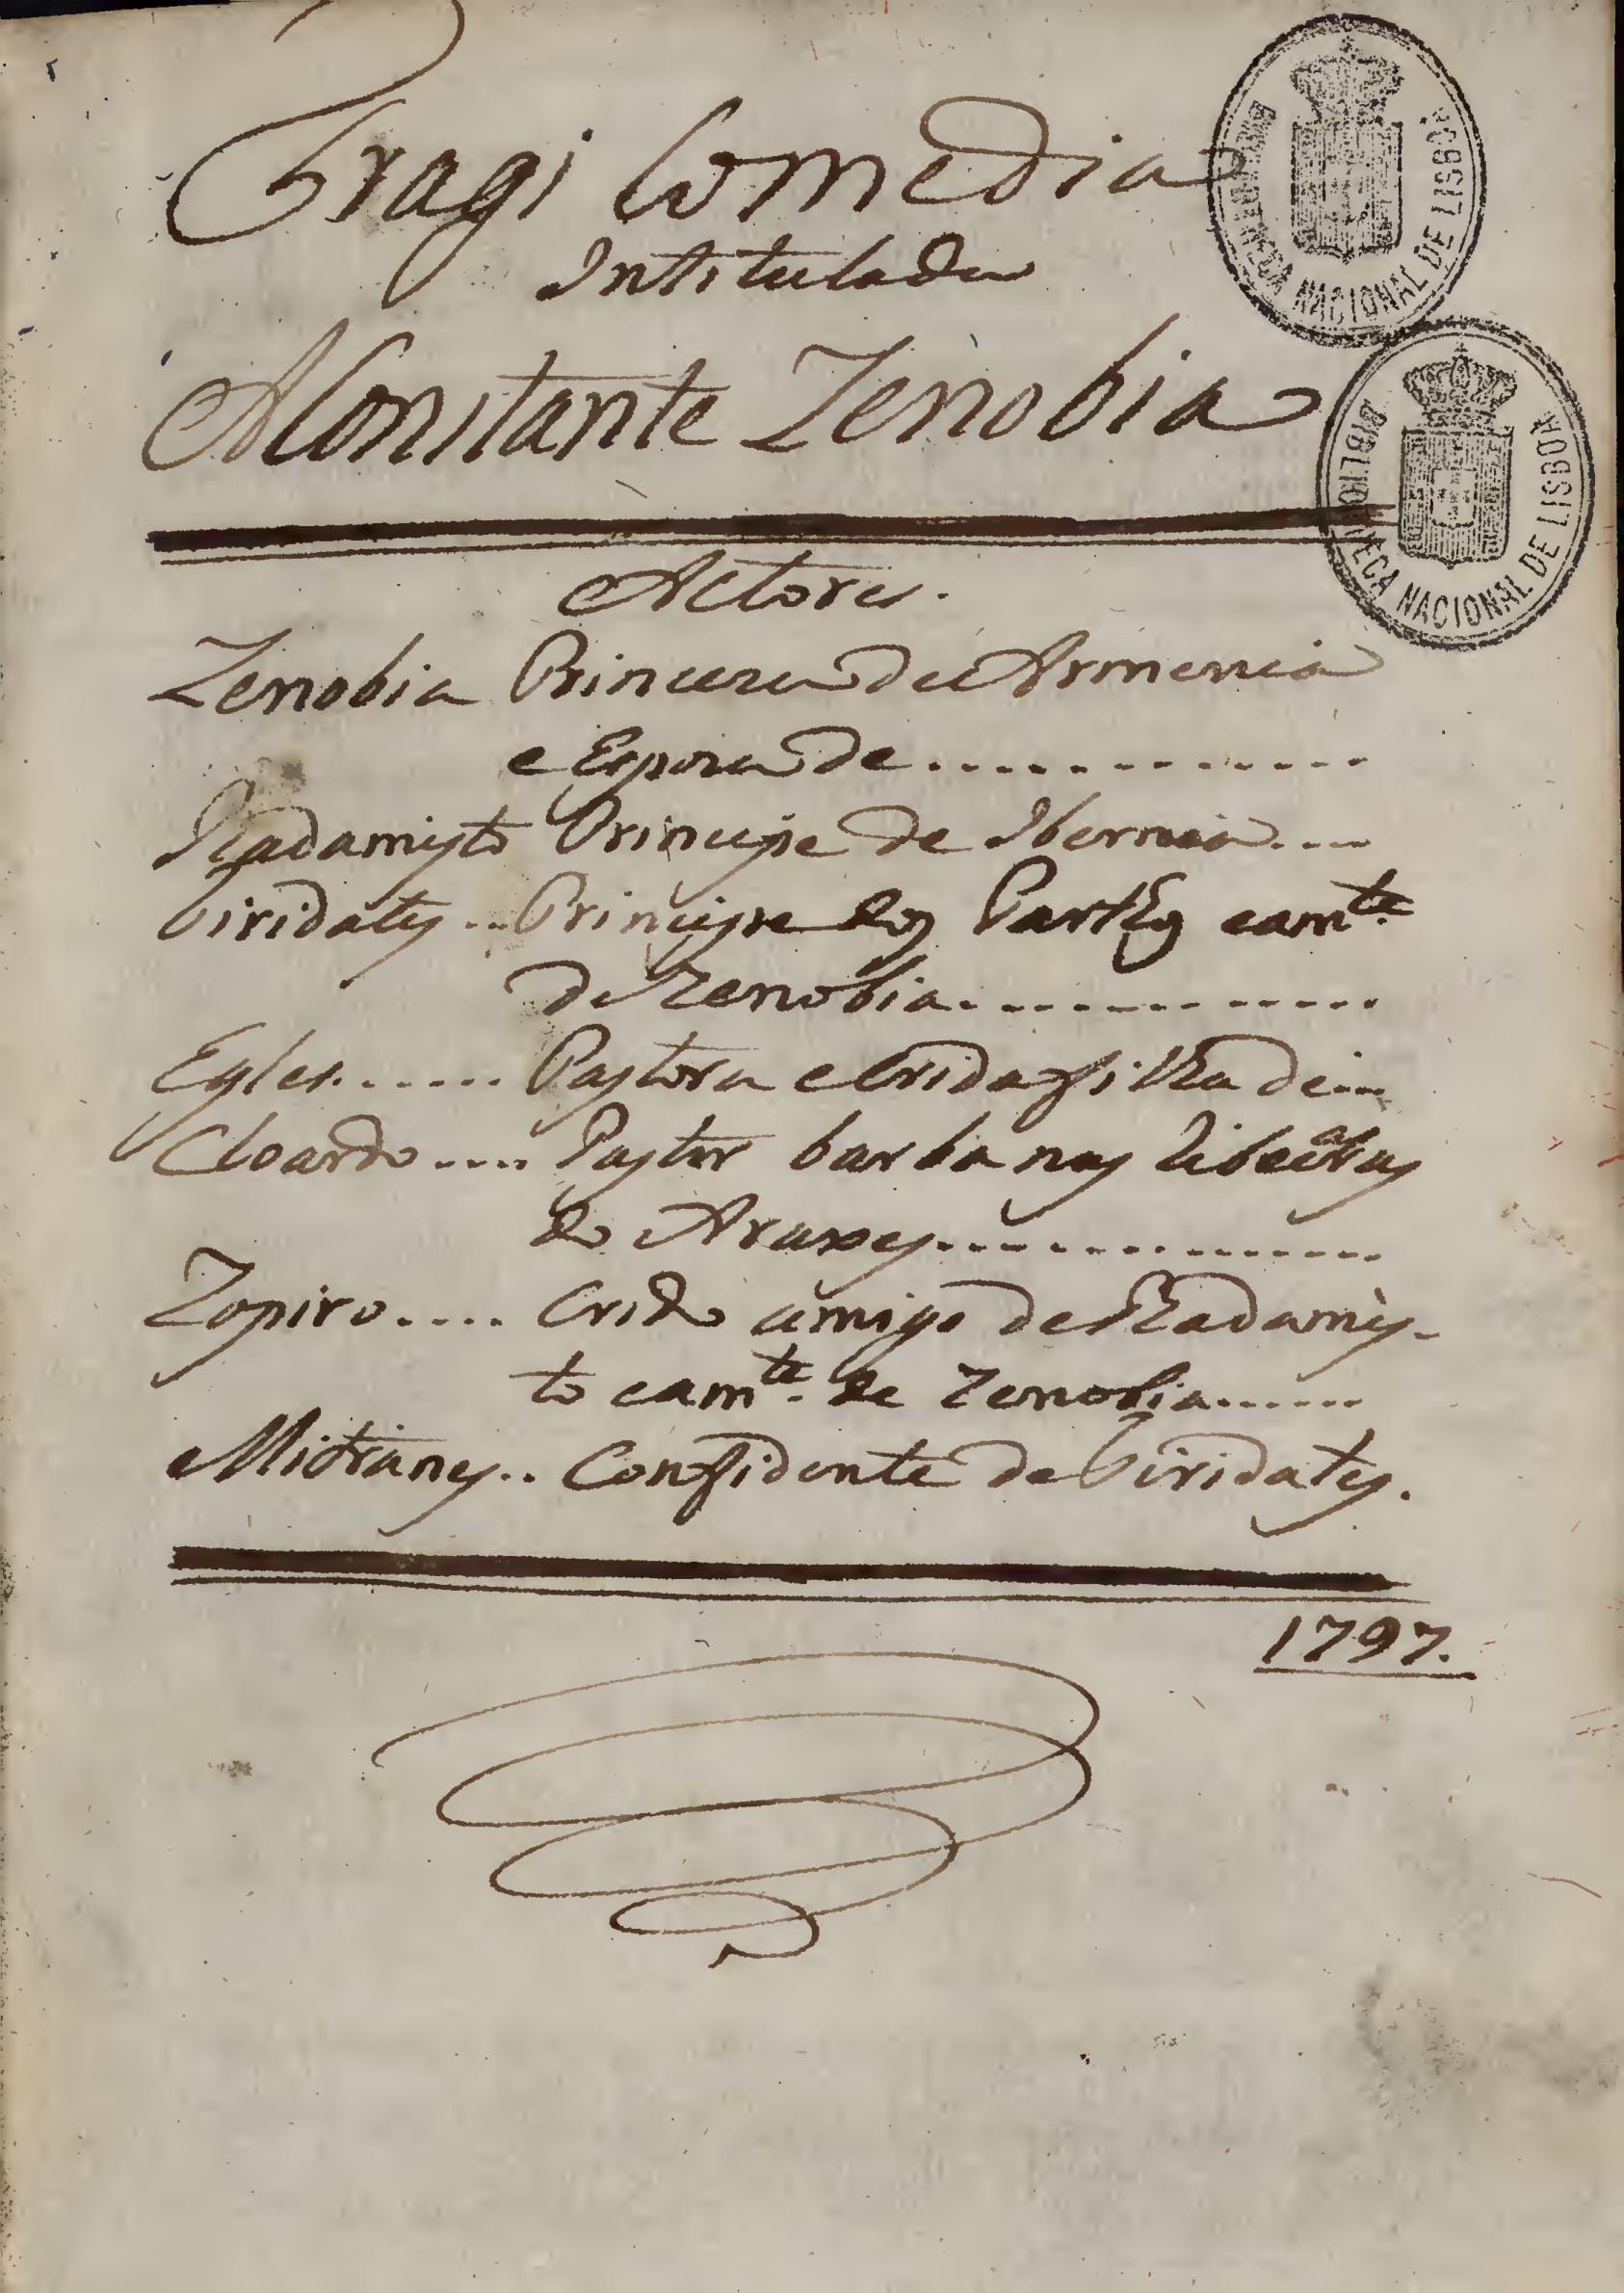 Tragi Comedia
Intitulada
A Constante Zenobia
Actores.
Zenobia Princeza de Armenia
e Espoza de.............
Radamisto Principe de Ibernia....
Tiridates... Principe dos Parthos eamte.
de Zenobia.............
Egles...... Pastora e Crida filha de....
Cloardo.... Pastor barba nas Ribeiras
do Araxes...............
Zopiro.... Crido amigo de Radamis-
to eamte. de Zenobia......
Mitranes.. Confidente de Tiridates.
1797.
BIBLIOTHECA NACIONAL DE LISBOA
BIBLIOTHECA NACIONAL DE LISBOA